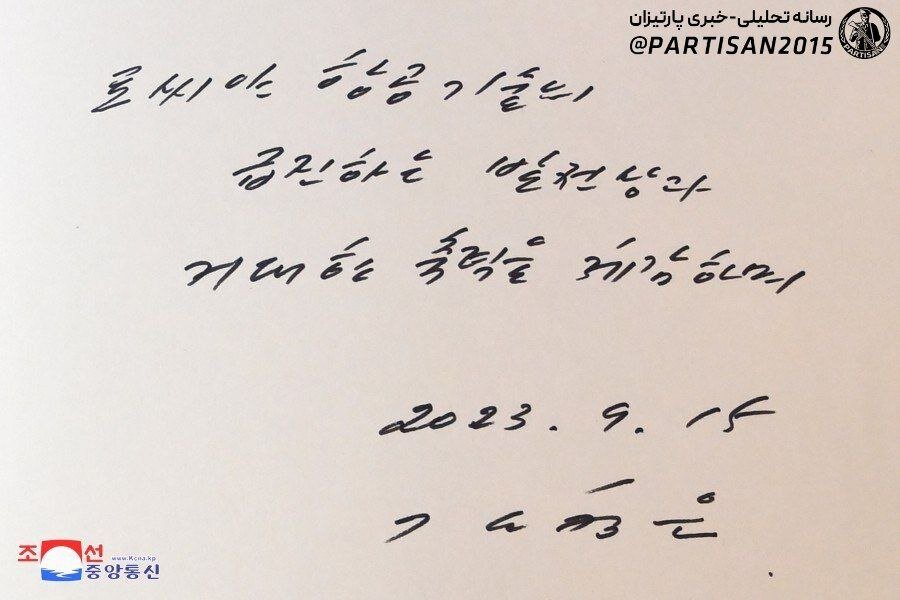 رسانه تحلیلی-خبری پارتیزان
@PARTISAN2015
PARTISAN
로씨야 항공기술의
급진하는 발전상과
거대한 축력을 체감하며
2023. 9. 15
김정은
조선
www.Kcna.kp
중앙통신